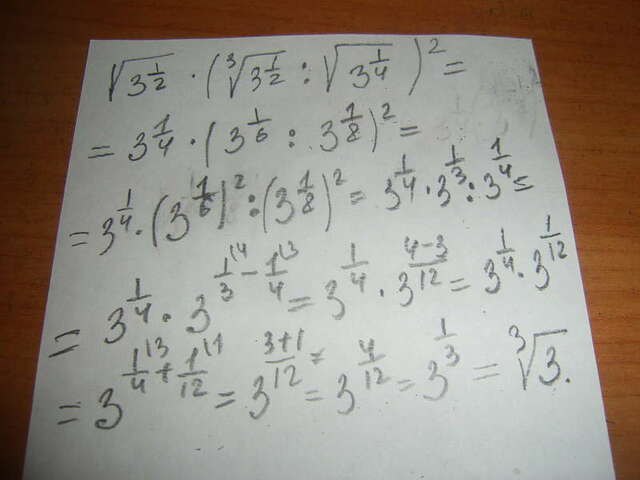 √3^(1/2) · (∛3^(1/2) : √3^(1/4))² =
= 3^(1/4) · (3^(1/6) : 3^(1/8))² =
= 3^(1/4) · (3^(1/6))² : (3^(1/8))² = 3^(1/4) · 3^(1/3) : 3^(1/4) =
= 3^(1/4) · 3^(1/3^(\4) - 1/4^(\3)) = 3^(1/4) · 3^((4-3)/12) = 3^(1/4) · 3^(1/12)
= 3^(1/4^(\3) + 1/12^(\1)) = 3^((3+1)/12) = 3^(4/12) = 3^(1/3) = ∛3.